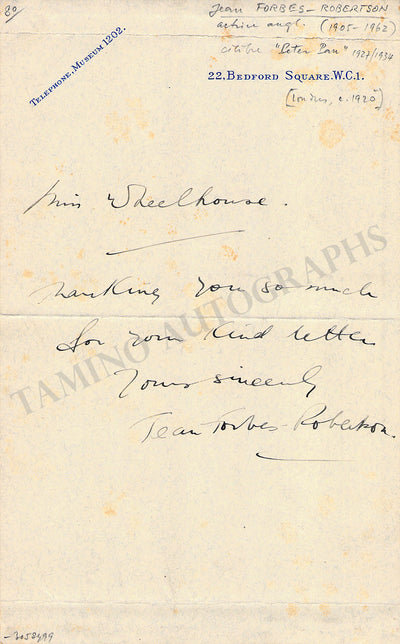 80/
Jean FORBES-ROBERTSON
actrice angl. (1905-1962)
célèbre "Peter Pan" 1927/1934
TELEPHONE, MUSEUM 1202.
22, BEDFORD SQUARE. W.C.1.
[Londres, c. 1920]
Miss Wheelhouse.
Thanking you so much
for your kind letter
Yours sincerely
Jean Forbes-Robertson.
TAMINO AUTOGRAPHS